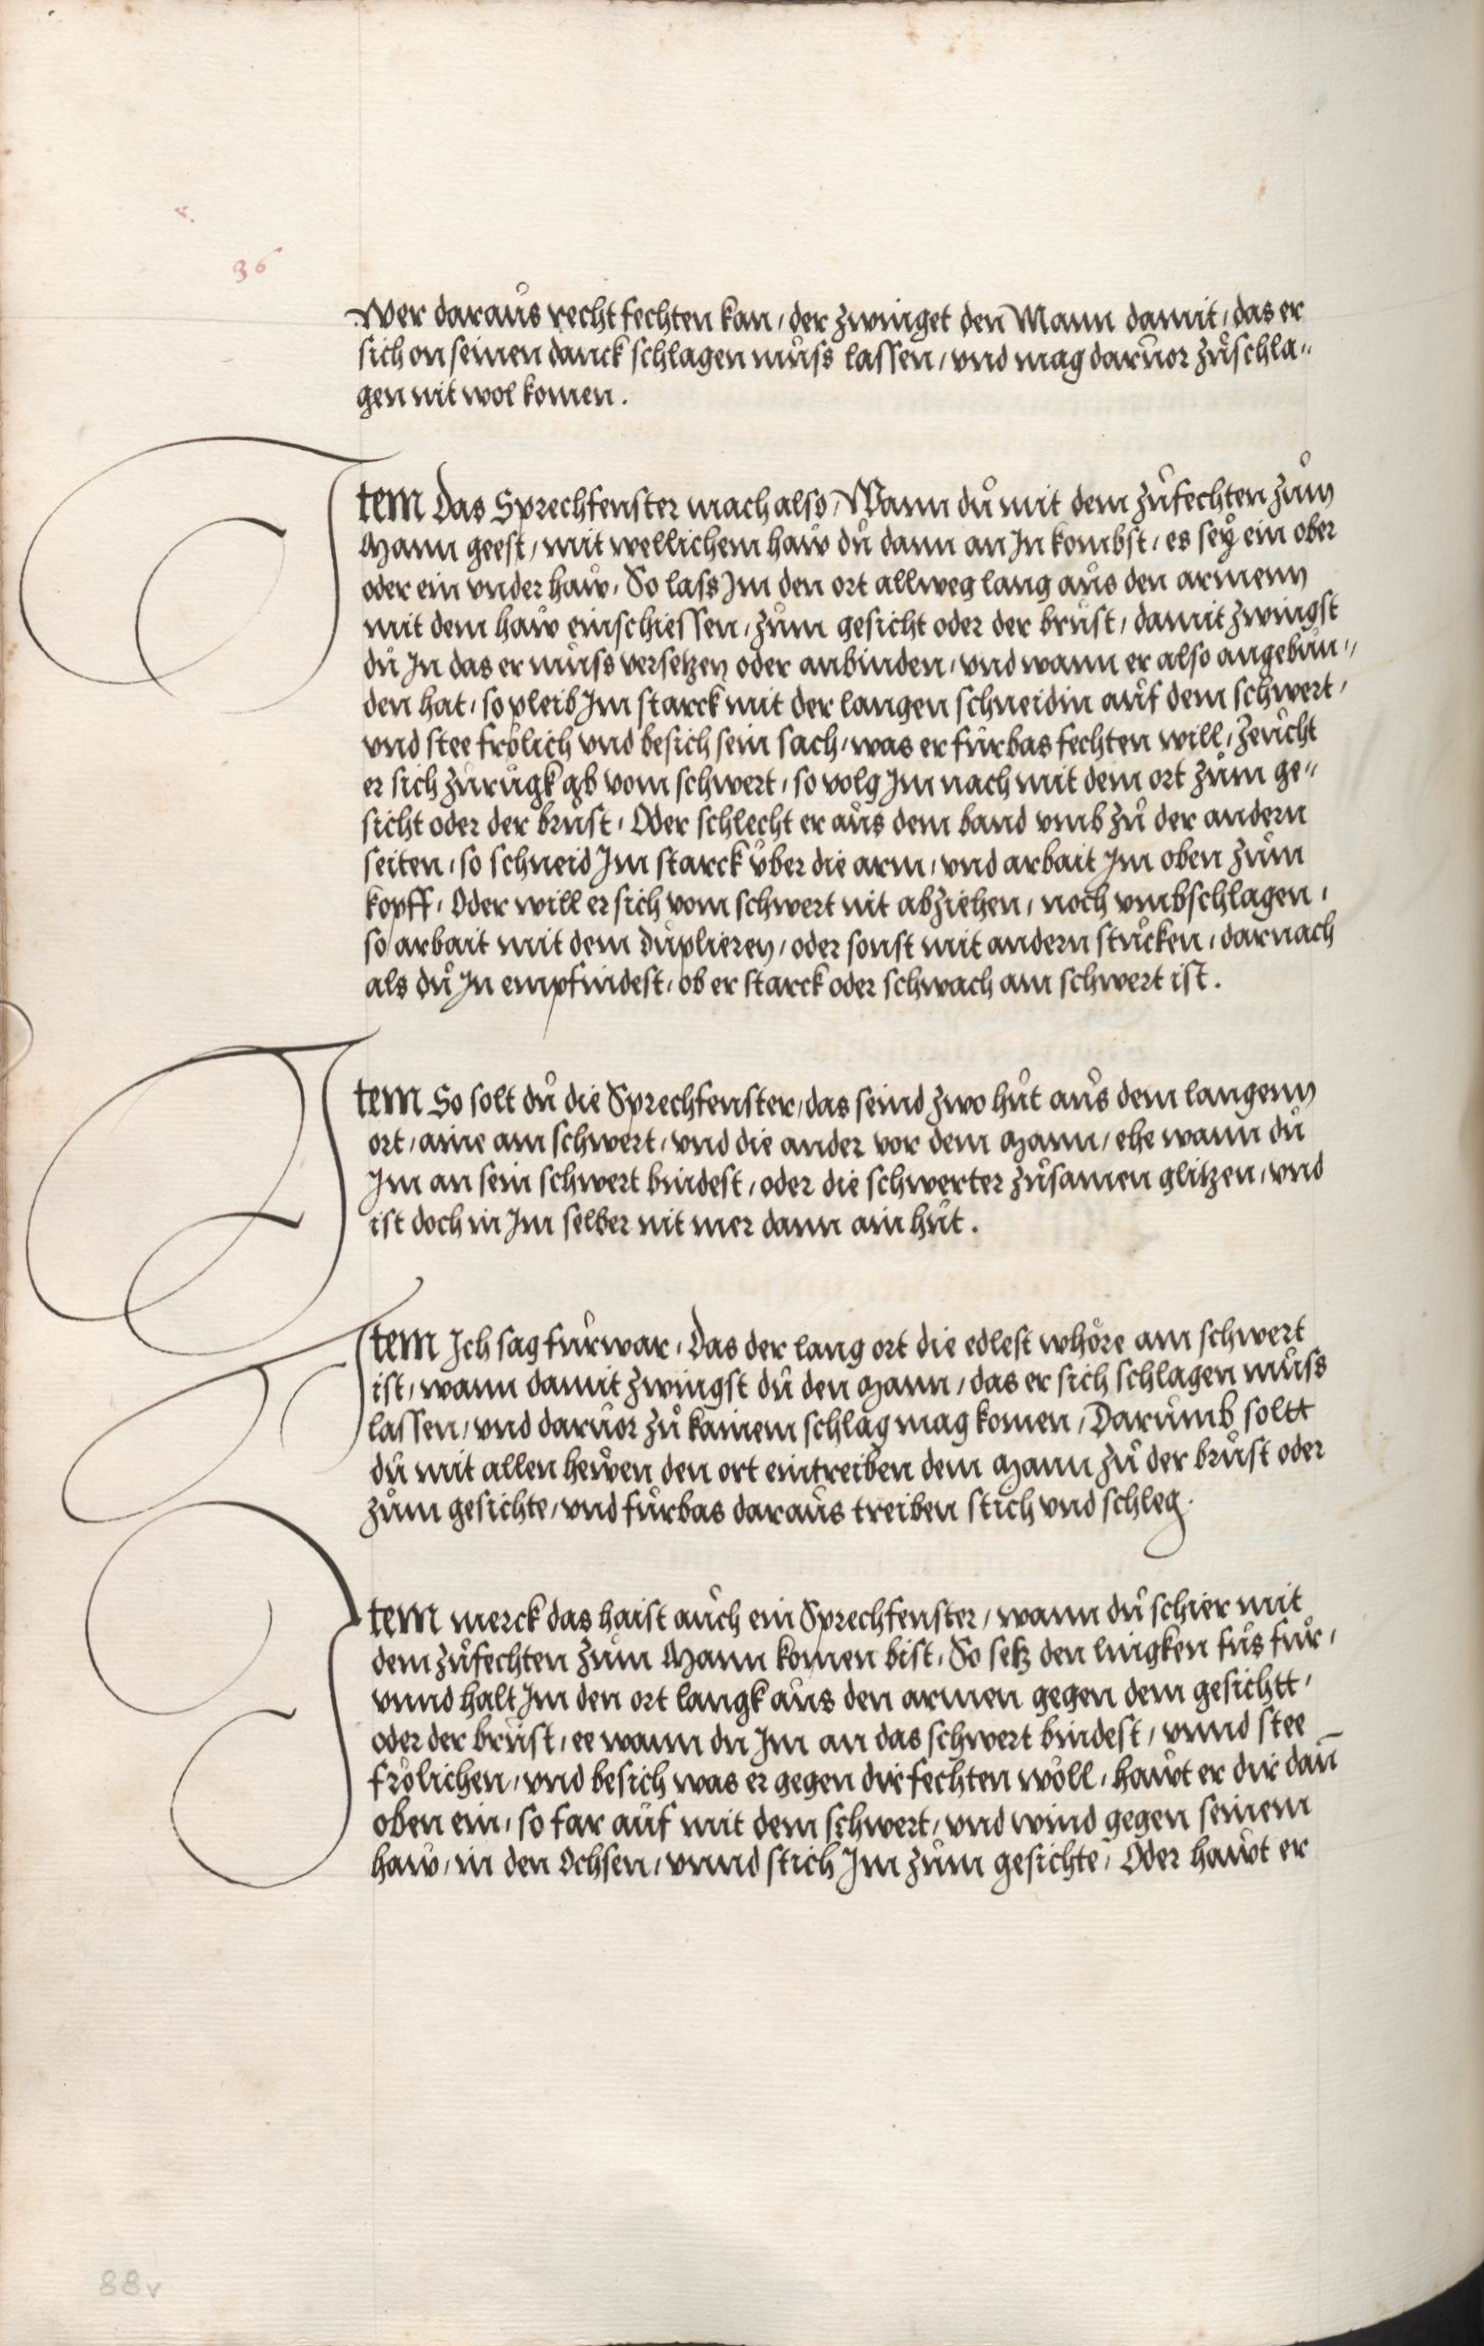 36
Wer daraůs recht fechten kan, der zwinget den Mann damit, das er
sich on seinen danck schlagen můss lassen, vnd mag darůor zůschla-
gen nit wol komen.
Item Das Sprechfenster mach also, Wann dů mit dem zůfechten zům
Mann geest, mit wellichem haẘ dů dann an In kombst, es seÿ ein ober
oder ein vnder haẘ, So lass Im den ort allweg lang aůs den armenn
mit dem haẘ einschiessen, zům gesicht oder der brůst, damit zwingst
dů In das er můss versetzen oder anbinden, vnd wann er also angebůn-
den hat, so pleib Im starck mit der langen schneidin aůf dem schwert,
vnd stee frölich vnd besich sein sach, was er fůrbas fechten will, Zeůcht
er sich zůrůgk ab vom schwert, so volg Im nach mit dem ort zům ge-
sicht oder der brust, Oder schlecht er aůs dem band vmb zů der andern
seiten, so schneid Im starck vber die arm, vnd arbait Im oben zům
kopff, Oder will er sich vom schwert nit abziehen, noch vmbschlagen,
so arbait mit dem důplieren, oder sonst mit andern stůcken, darnach
als dů In empfindest, ob er starck oder schwach am schwert ist.
Item So solt dů die Sprechfenster, das seind zwo hůt aůs dem langenn
ort, aine am schwert, vnd die ander vor dem Mann, ehe wann dů
Im an sein schwert bindest, oder die schwerter zůsamen glitzen, vnd
ist doch in Im selber nit mer dann ain hůt.
Item Ich sag fůrwar, Das der lang ort die edlest whöre am schwert
ist, wann damit zwingst dů den Mann, das er sich schlagen můss
lassen, vnd darůor zů kainem schlag mag komen, Darůmb soltt
dů mit allen heẘen den ort eintreiben dem Mann zů der brůst oder
zům gesichte, vnd fůrbas daraůs treiben stich vnd schleg.
Item merck das haist aůch ein Sprechfenster, wann dů schier mit
dem zůfechten zům Mann komen bist, So setz den lingken fůs fůr,
vnnd halt Im den ort langk aůs den armen gegen dem gesichtt,
oder der brůst, ee wann du Im an das schwert bindest, vnnd stee
frölichen, vnd besich was er gegen dir fechten wöll, haẘt er dir dañ
oben ein, so far aůf mit dem schwert, vnd wind gegen seinem
haẘ, in den Ochsen, vnnd stich Im zům gesichte, Oder haẘt er
88v